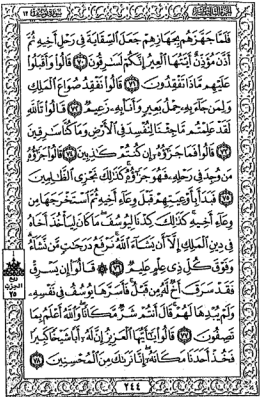 فَلَمَّا جَهَّزَهُم بِجَهَازِهِمْ جَعَلَ ٱلسِّقَايَةَ فِى رَحْلِ أَخِيهِ ثُمَّ
أَذَّنَ مُؤَذِّنٌ أَيَّتُهَا ٱلْعِيرُ إِنَّكُمْ لَسَٰرِقُونَ ﴿٧٠﴾ قَالُوا۟ وَأَقْبَلُوا۟
عَلَيْهِم مَّاذَا تَفْقِدُونَ ﴿٧١﴾ قَالُوا۟ نَفْقِدُ صُوَاعَ ٱلْمَلِكِ
وَلِمَن جَآءَ بِهِۦ حِمْلُ بَعِيرٍ وَأَنَا۠ بِهِۦ زَعِيمٌ ﴿٧٢﴾ قَالُوا۟ تَٱللَّهِ
لَقَدْ عَلِمْتُم مَّا جِئْنَا لِنُفْسِدَ فِى ٱلْأَرْضِ وَمَا كُنَّا سَٰرِقِينَ
﴿٧٣﴾ قَالُوا۟ فَمَا جَزَٰٓؤُهُۥٓ إِن كُنتُمْ كَٰذِبِينَ ﴿٧٤﴾ قَالُوا۟ جَزَٰٓؤُهُۥ
مَن وُجِدَ فِى رَحْلِهِۦ فَهُوَ جَزَٰٓؤُهُۥ كَذَٰلِكَ نَجْزِى ٱلظَّٰلِمِينَ
﴿٧٥﴾ فَبَدَأَ بِأَوْعِيَتِهِمْ قَبْلَ وِعَآءِ أَخِيهِ ثُمَّ ٱسْتَخْرَجَهَا مِن
وِعَآءِ أَخِيهِ كَذَٰلِكَ كِدْنَا لِيُوسُفَ مَا كَانَ لِيَأْخُذَ أَخَاهُ
فِى دِينِ ٱلْمَلِكِ إِلَّآ أَن يَشَآءَ ٱللَّهُ نَرْفَعُ دَرَجَٰتٍ مَّن نَّشَآءُ
وَفَوْقَ كُلِّ ذِى عِلْمٍ عَلِيمٌ ﴿٧٦﴾ ۞ قَالُوٓا۟ إِن يَسْرِقْ
فَقَدْ سَرَقَ أَخٌ لَّهُۥ مِن قَبْلُ فَأَسَرَّهَا يُوسُفُ فِى نَفْسِهِۦ
وَلَمْ يُبْدِهَا لَهُمْ قَالَ أَنتُمْ شَرٌّ مَّكَانًا وَٱللَّهُ أَعْلَمُ بِمَا
تَصِفُونَ ﴿٧٧﴾ قَالُوا۟ يَٰٓأَيُّهَا ٱلْعَزِيزُ إِنَّ لَهُۥٓ أَبًا شَيْخًا كَبِيرًا
فَخُذْ أَحَدَنَا مَكَانَهُۥٓ إِنَّا نَرَىٰكَ مِنَ ٱلْمُحْسِنِينَ ﴿٧٨﴾
ربع
الحزب
٢٥
٢٤٤